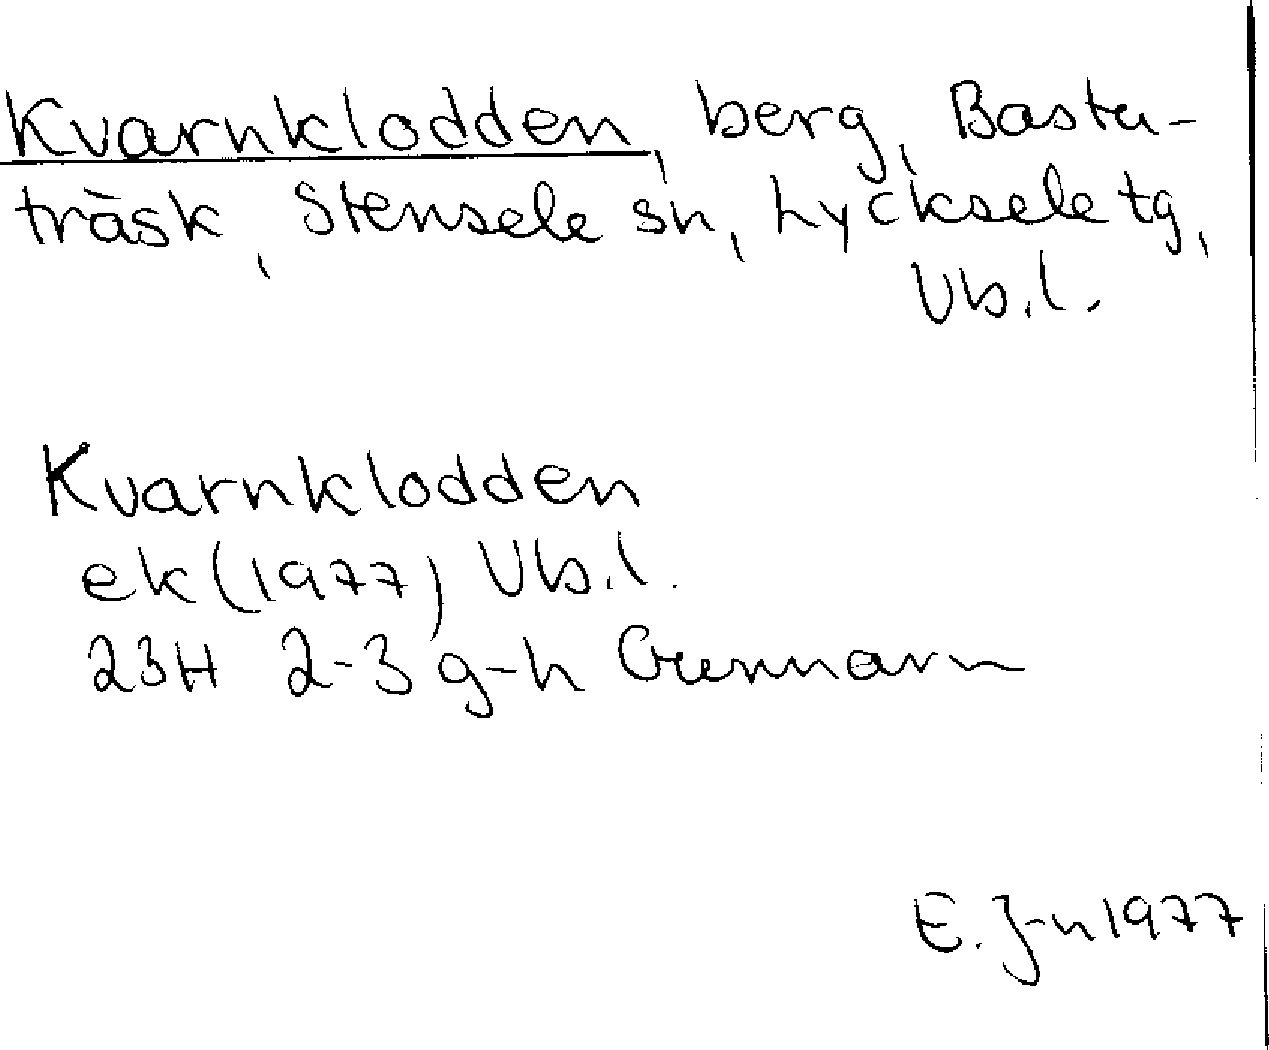 Kvarnklodden, berg, Bastu-
träsk, Stensele sn, Lycksele tg,
Vb.l.
Kvarnklodden
ek (1977) Vb.l.
23H 2-3 g-h Gunnarn
E. J-n 1977